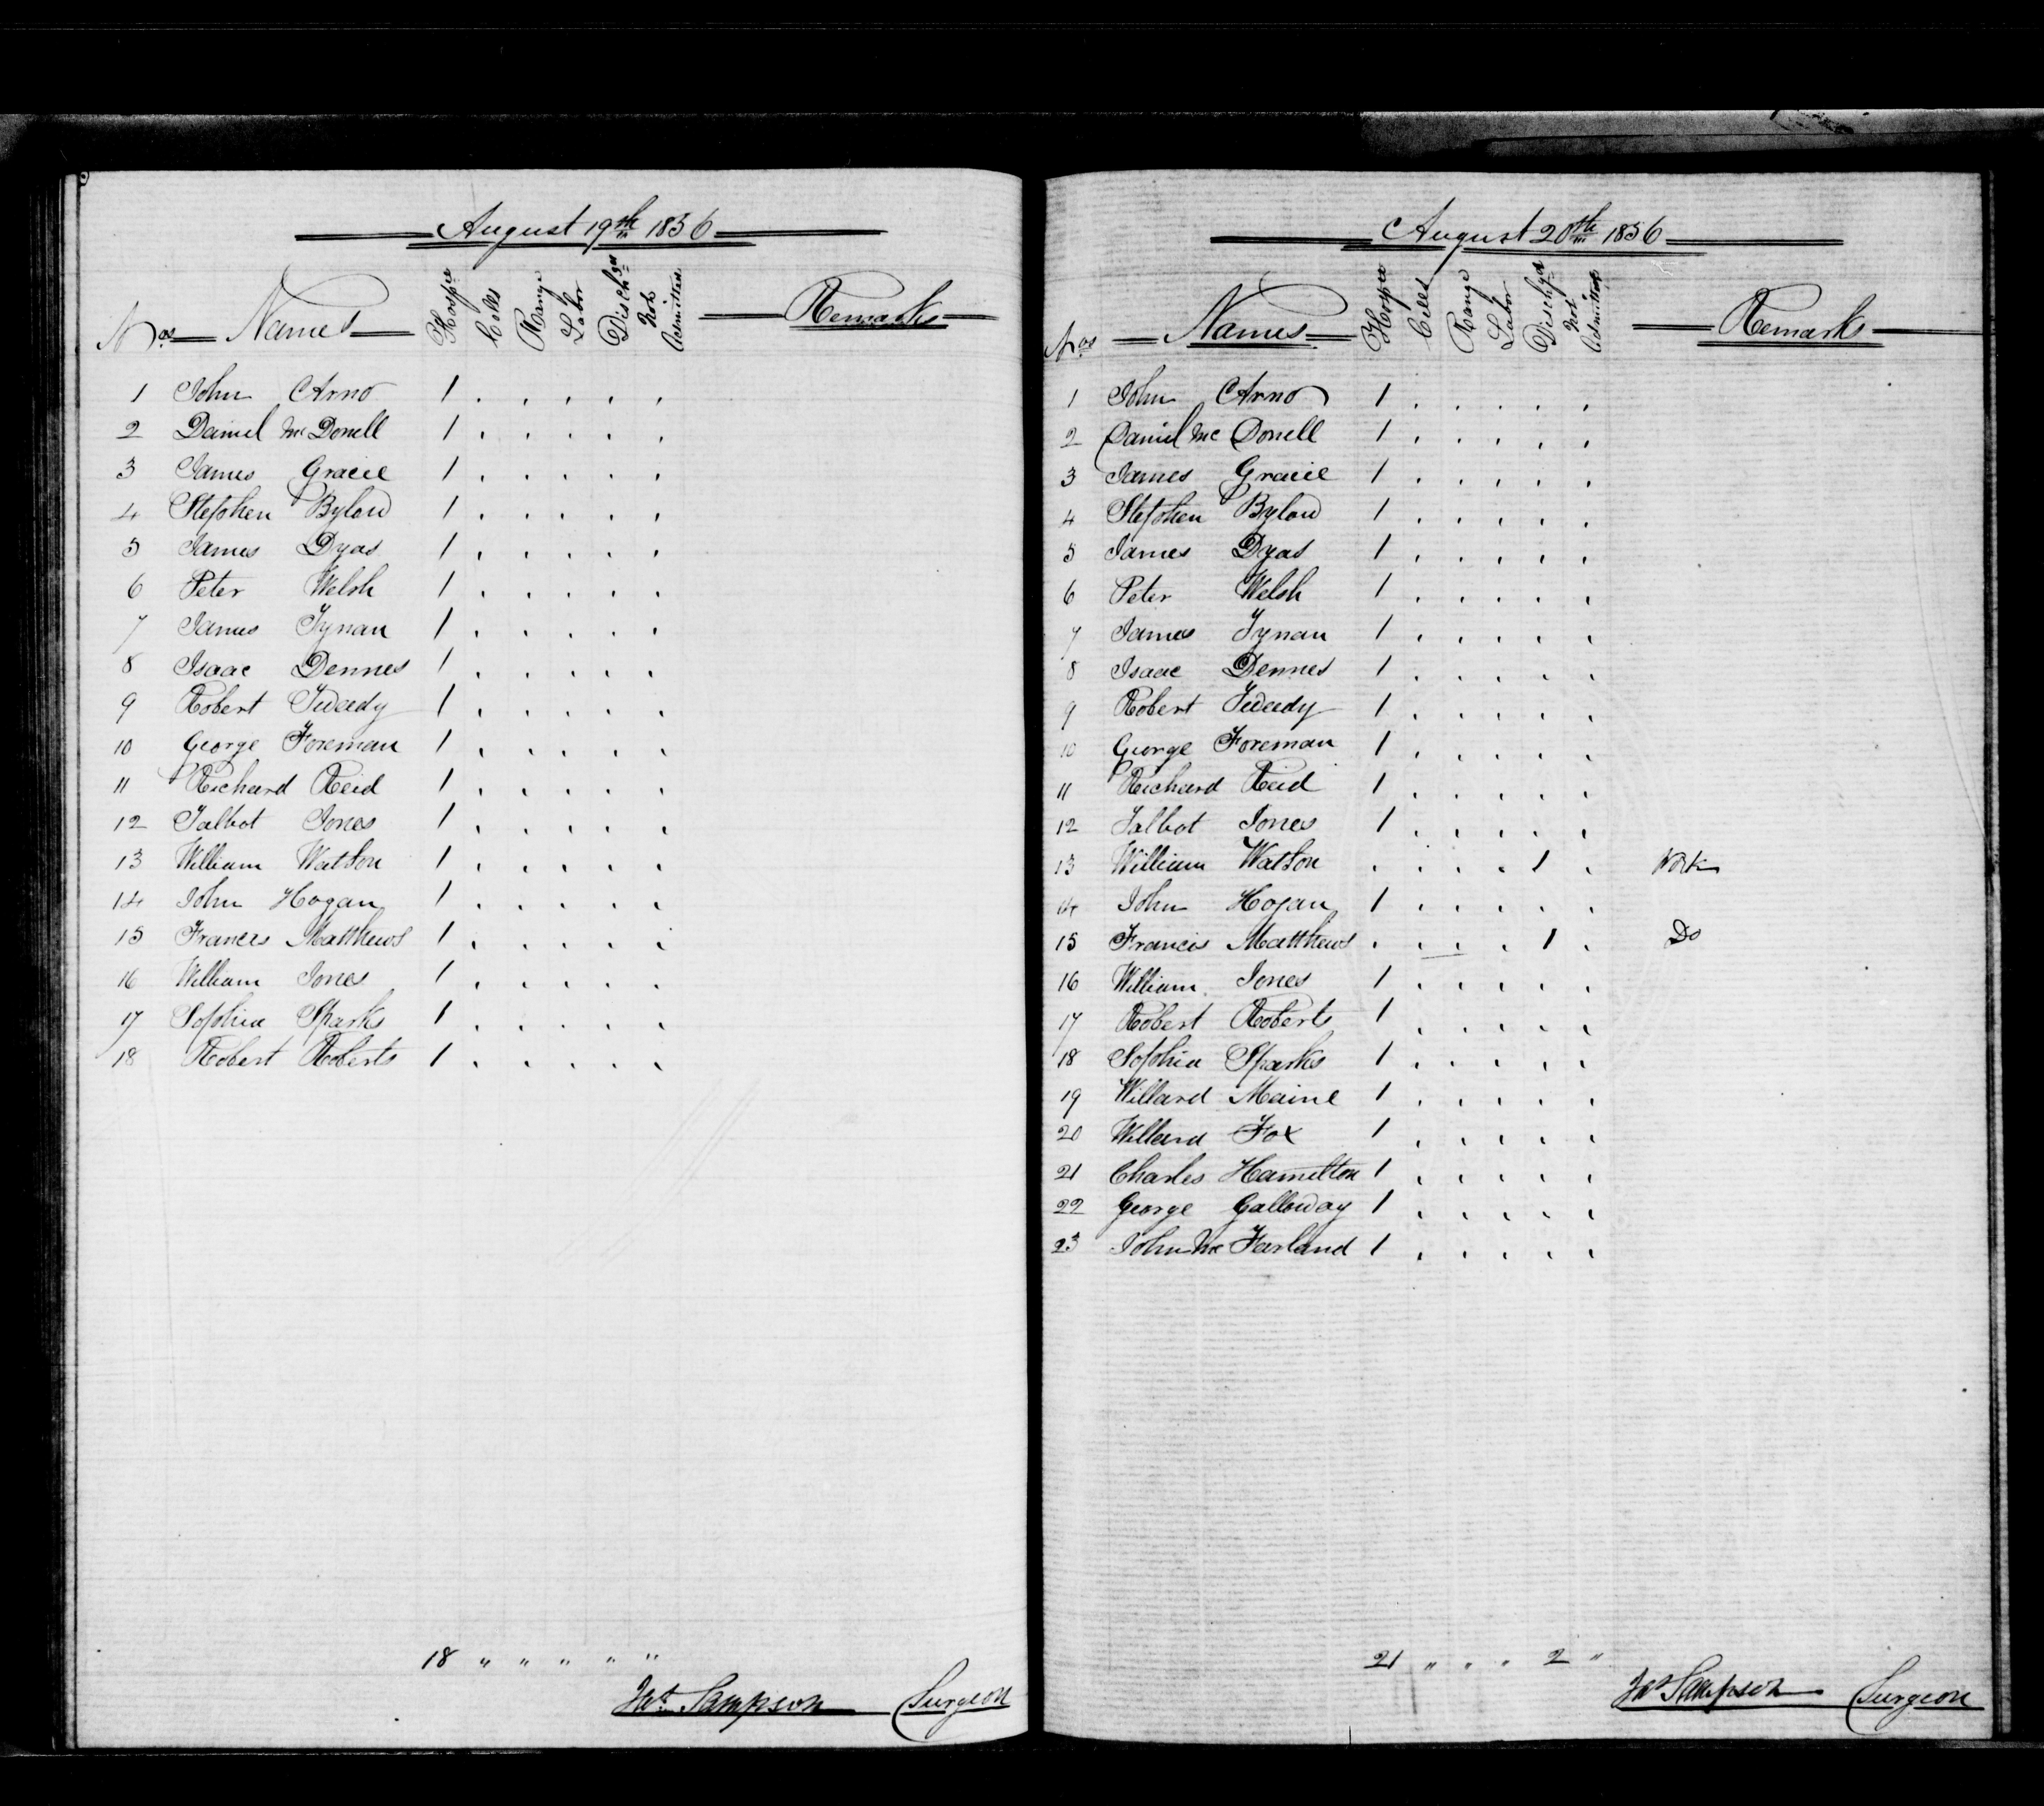 August 19th 1856
Nos Names Hospl Cells Range Labor Dischgd Not Admitted Remarks
1 John Arno 1 . . . . .
2 Daniel Mc Donell 1 . . . . .
3 James Gracie 1 . . . . .
4 Stephen Bylow 1 . . . . .
5 James Dyas 1 . . . . .
6 Peter Welsh 1 . . . . .
7 James Tynan 1 . . . . .
8 Isaac Dennes 1 . . . . .
9 Robert Tweedy 1 . . . . .
10 George Foreman 1 . . . . .
11 Richard Reid 1 . . . . .
12 Talbot Jones 1 . . . . .
13 William Watson 1 . . . . .
14 John Hogan 1 . . . . .
15 Francis Matthews 1 . . . . .
16 William Jones 1 . . . . .
17 Sophia Sparks 1 . . . . .
18 Robert Roberts 1 . . . . .
18 " " " " "
Jas Sampson Surgeon
August 20th 1856
Nos Names Hospl Cells Range Labor Dischgd Not Admitted Remarks
1 John Arno 1 . . . . .
2 Daniel Mc Donell 1 . . . . .
3 James Gracie 1 . . . . .
4 Stephen Bylow 1 . . . . .
5 James Dyas 1 . . . . .
6 Peter Welsh 1 . . . . .
7 James Tynan 1 . . . . .
8 Isaac Dennes 1 . . . . .
9 Robert Tweedy 1 . . . . .
10 George Foreman 1 . . . . .
11 Richard Reid 1 . . . . .
12 Talbot Jones 1 . . . . .
13 William Watson . . . . 1 . Work
14 John Hogan 1 . . . . .
15 Francis Matthews . . . . 1 . Do
16 William Jones 1 . . . . .
17 Robert Roberts 1 . . . . .
18 Sophia Sparks 1 . . . . .
19 Willard Maine 1 . . . . .
20 Willard Fox 1 . . . . .
21 Charles Hamilton 1 . . . . .
22 George Galloway 1 . . . . .
23 John Mc Farland 1 . . . . .
21 " " " 2 "
Jas Sampson Surgeon